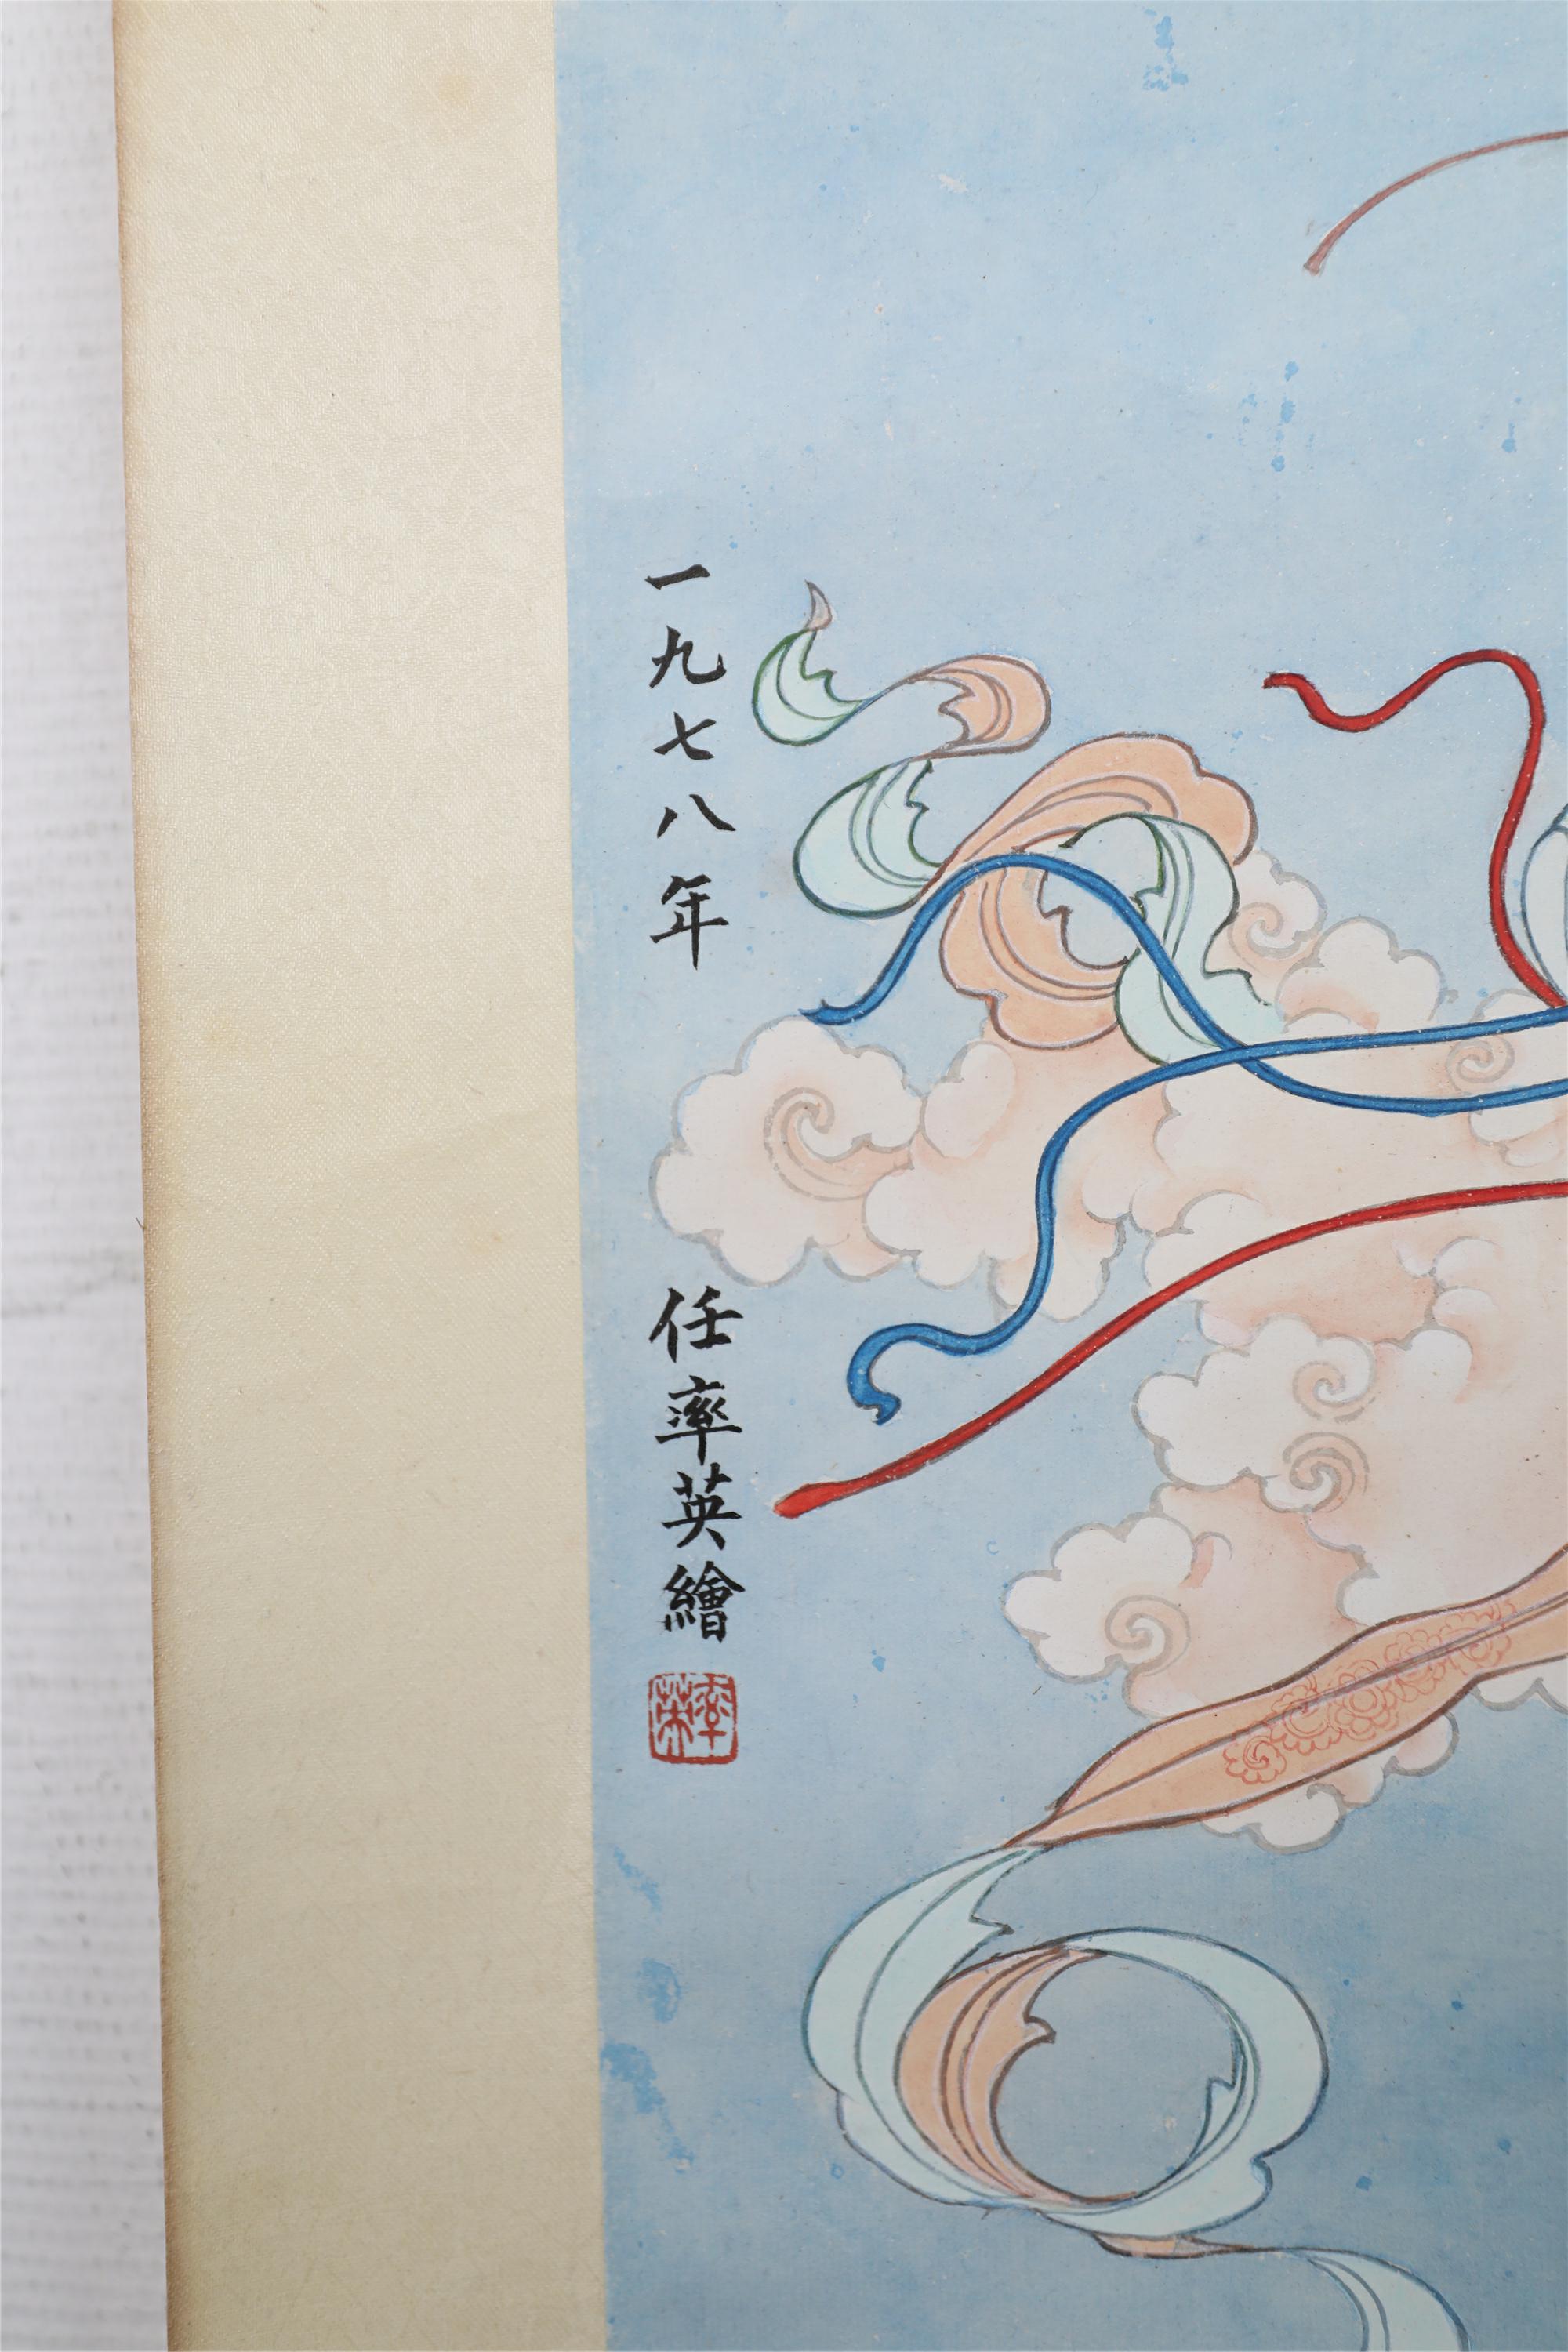 一九七八年
任率英繪
率英